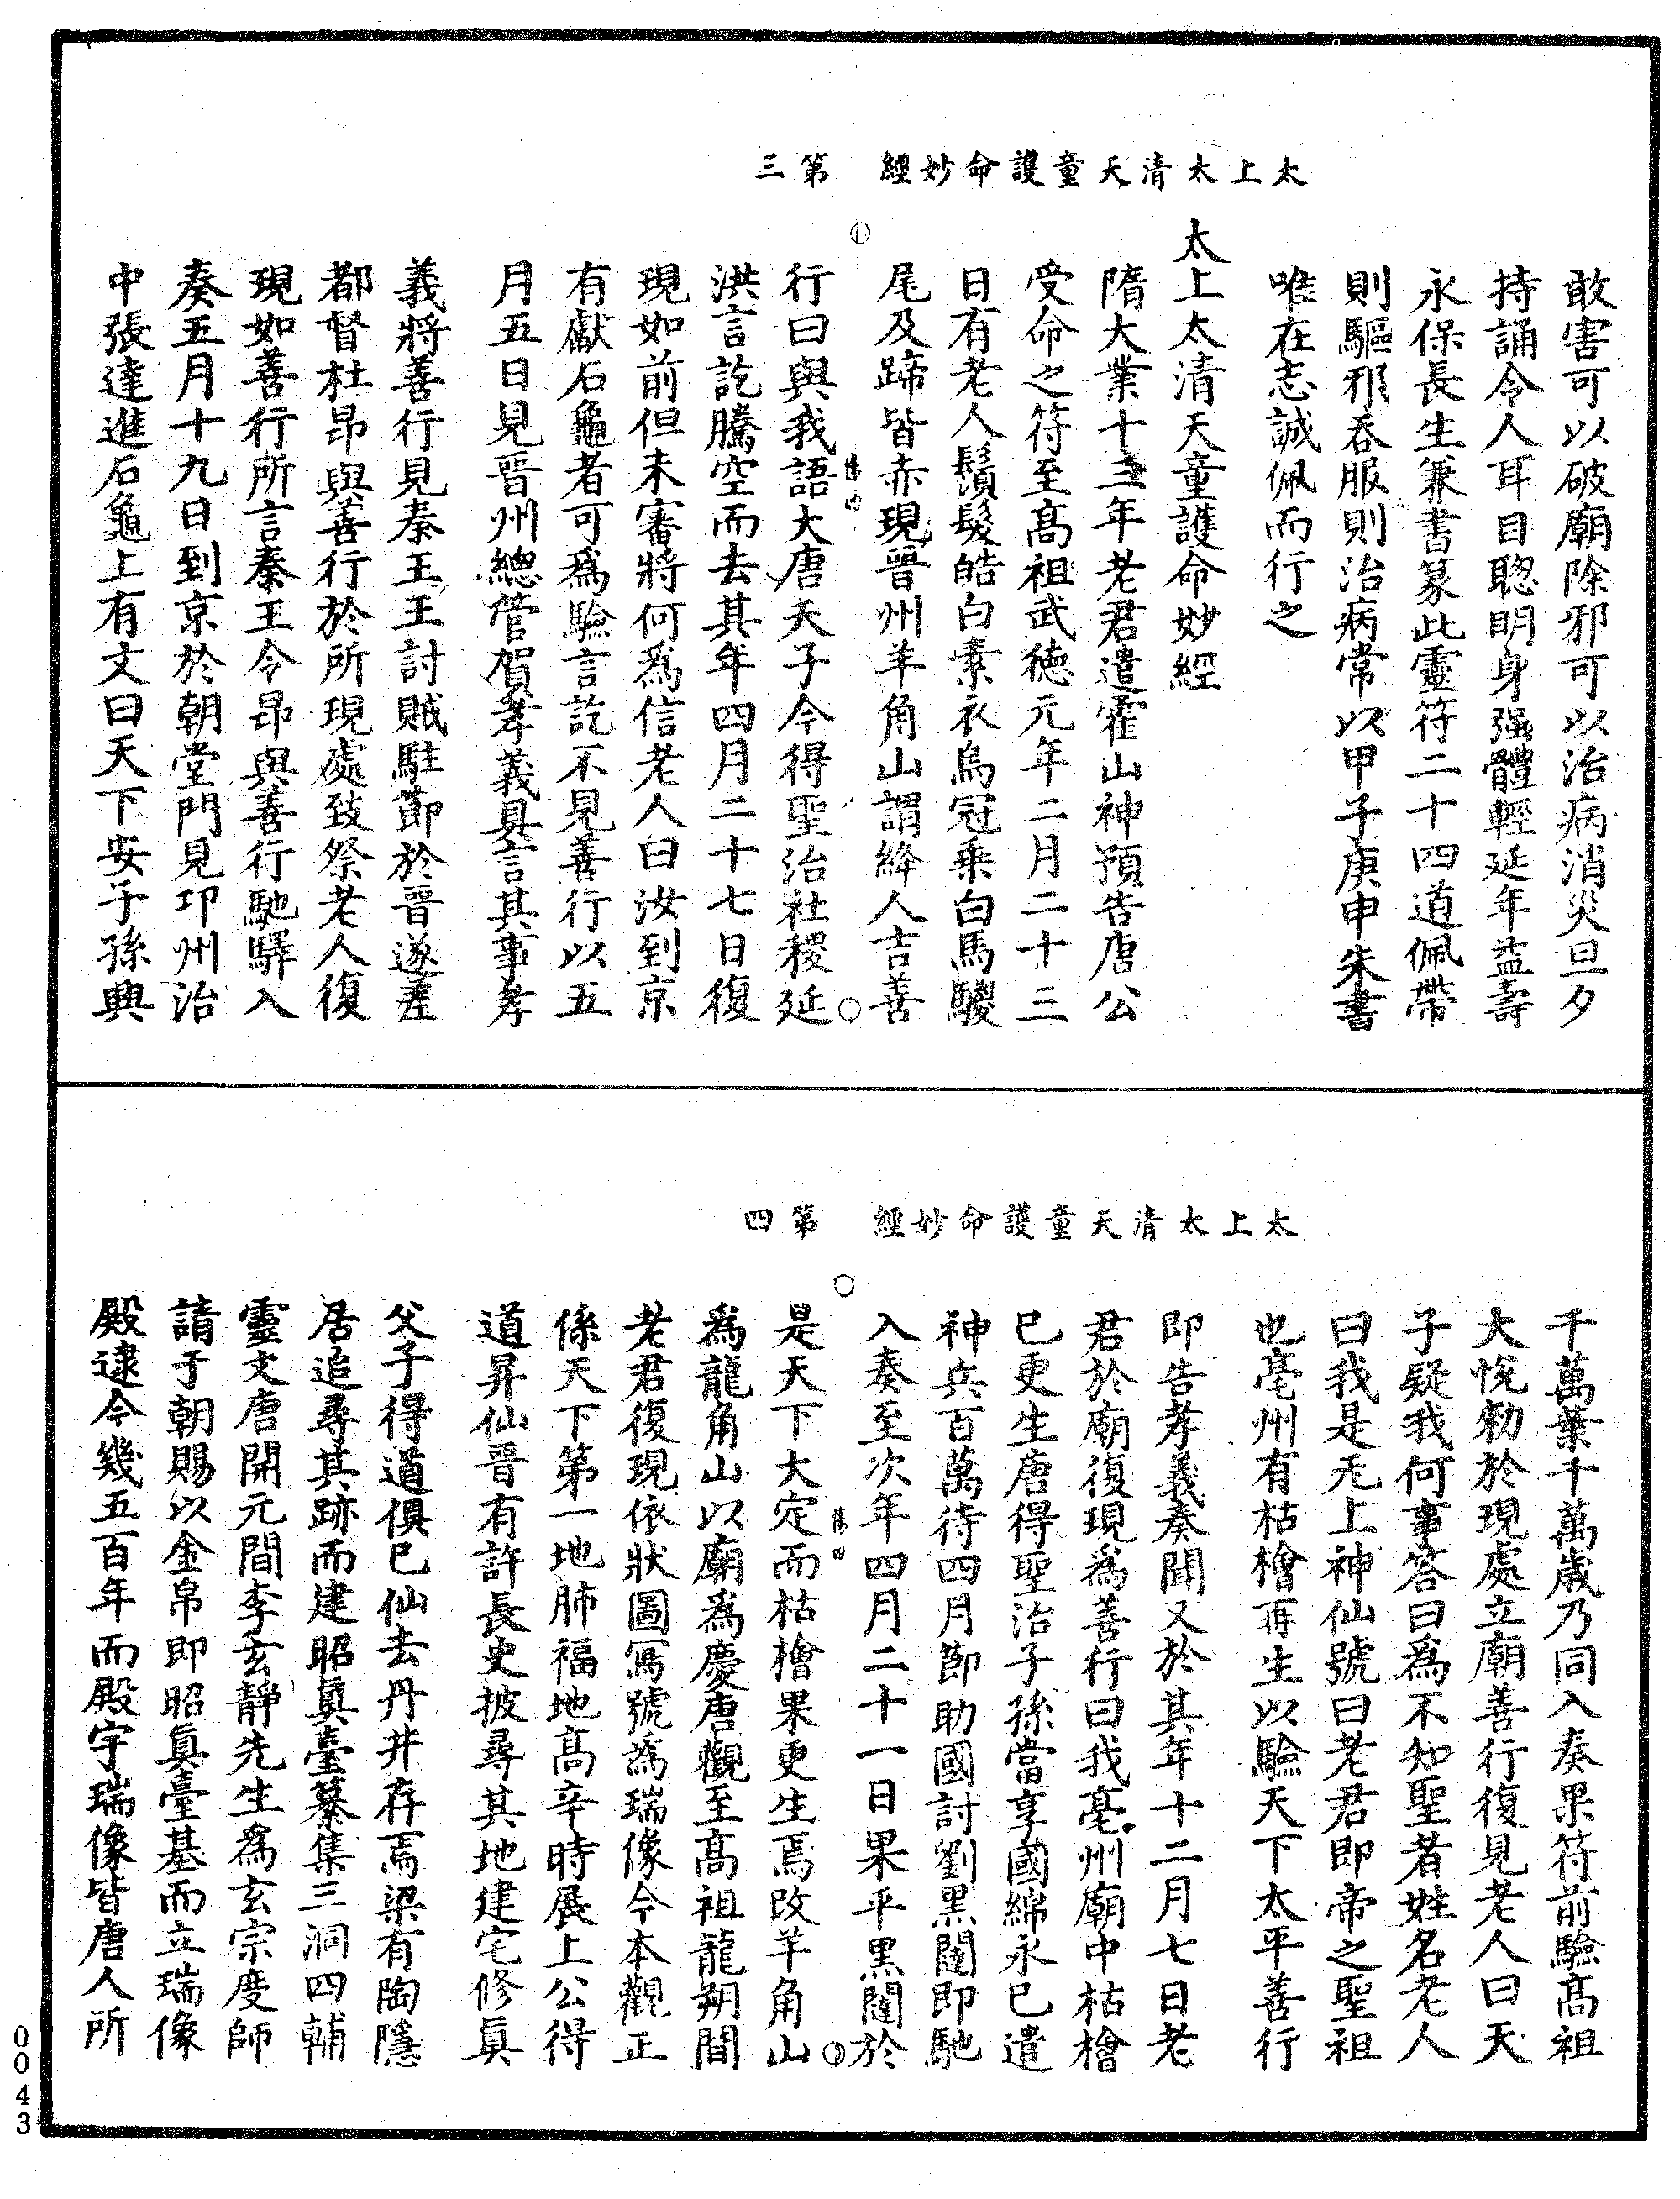 太上太清天童護命妙經　第三
敢害可以破廟除邪可以治病消災旦夕
持誦令人耳目聦明身强體輕延年益壽
永保長生兼書篆此靈符二十四道佩帶
則驅邪吞服則治病常以甲子庚申朱書
唯在志誠佩而行之
太上太清天童護命妙經
隋大業十三年老君遣霍山神預告唐公
受命之符至髙祖武德元年二月二十三
日有老人鬚髮皓白素衣烏冠乗白馬騣
尾及蹄皆赤現晉州羊角山謂絳人吉善
行曰與我語大唐天子今得聖治社稷延
洪言訖騰空而去其年四月二十七日復
現如前但未審將何爲信老人曰汝到京
有獻石龜者可爲驗言訖不見善行以五
月五日見晉州總管賀孝義具言其事孝
義將善行見秦王王討賊駐節於晉遂差
都督杜昂與善行於所現處致祭老人復
現如善行所言秦王令昂與善行馳驛入
奏五月十九日到京於朝堂門見卭州治
中張達進石龜上有文曰天下安子孫興
太上太清天童護命妙經　第四
千萬葉千萬歲乃同入奏果符前驗髙祖
大悅勑於現處立廟善行復見老人曰天
子疑我何事答曰爲不知聖者姓名老人
曰我是无上神仙號曰老君即帝之聖祖
也亳州有枯檜再生以驗天下太平善行
即告孝義奏聞又於其年十二月七日老
君於廟復現爲善行曰我亳州廟中枯檜
已更生唐得聖治子孫當享國綿永已遣
神兵百萬待四月節助國討劉黑闥即馳
入奏至次年四月二十一日果平黑闥於
是天下大定而枯檜果更生焉改羊角山
爲龍角山以廟爲慶唐觀至髙祖龍朔間
老君復現依狀圖寫號爲瑞像今本觀正
係天下第一地肺福地髙辛時展上公得
道昇仙晉有許長史披尋其地建宅修眞
父子得道俱已仙去丹井存焉梁有陶隱
居追尋其跡而建昭眞臺纂集三洞四輔
靈文唐開元間李玄靜先生爲玄宗度師
請于朝賜以金帛即昭眞臺基而立瑞像
殿逮今幾五百年而殿宇瑞像皆唐人所
0043